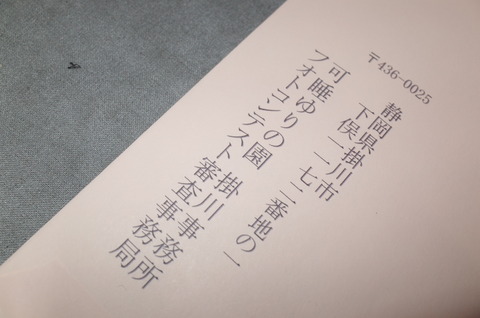 〒436-0025
静岡県掛川市
下俣一一七二番地の一
可睡ゆりの園　掛川事務所
フォトコンテスト審査事務局